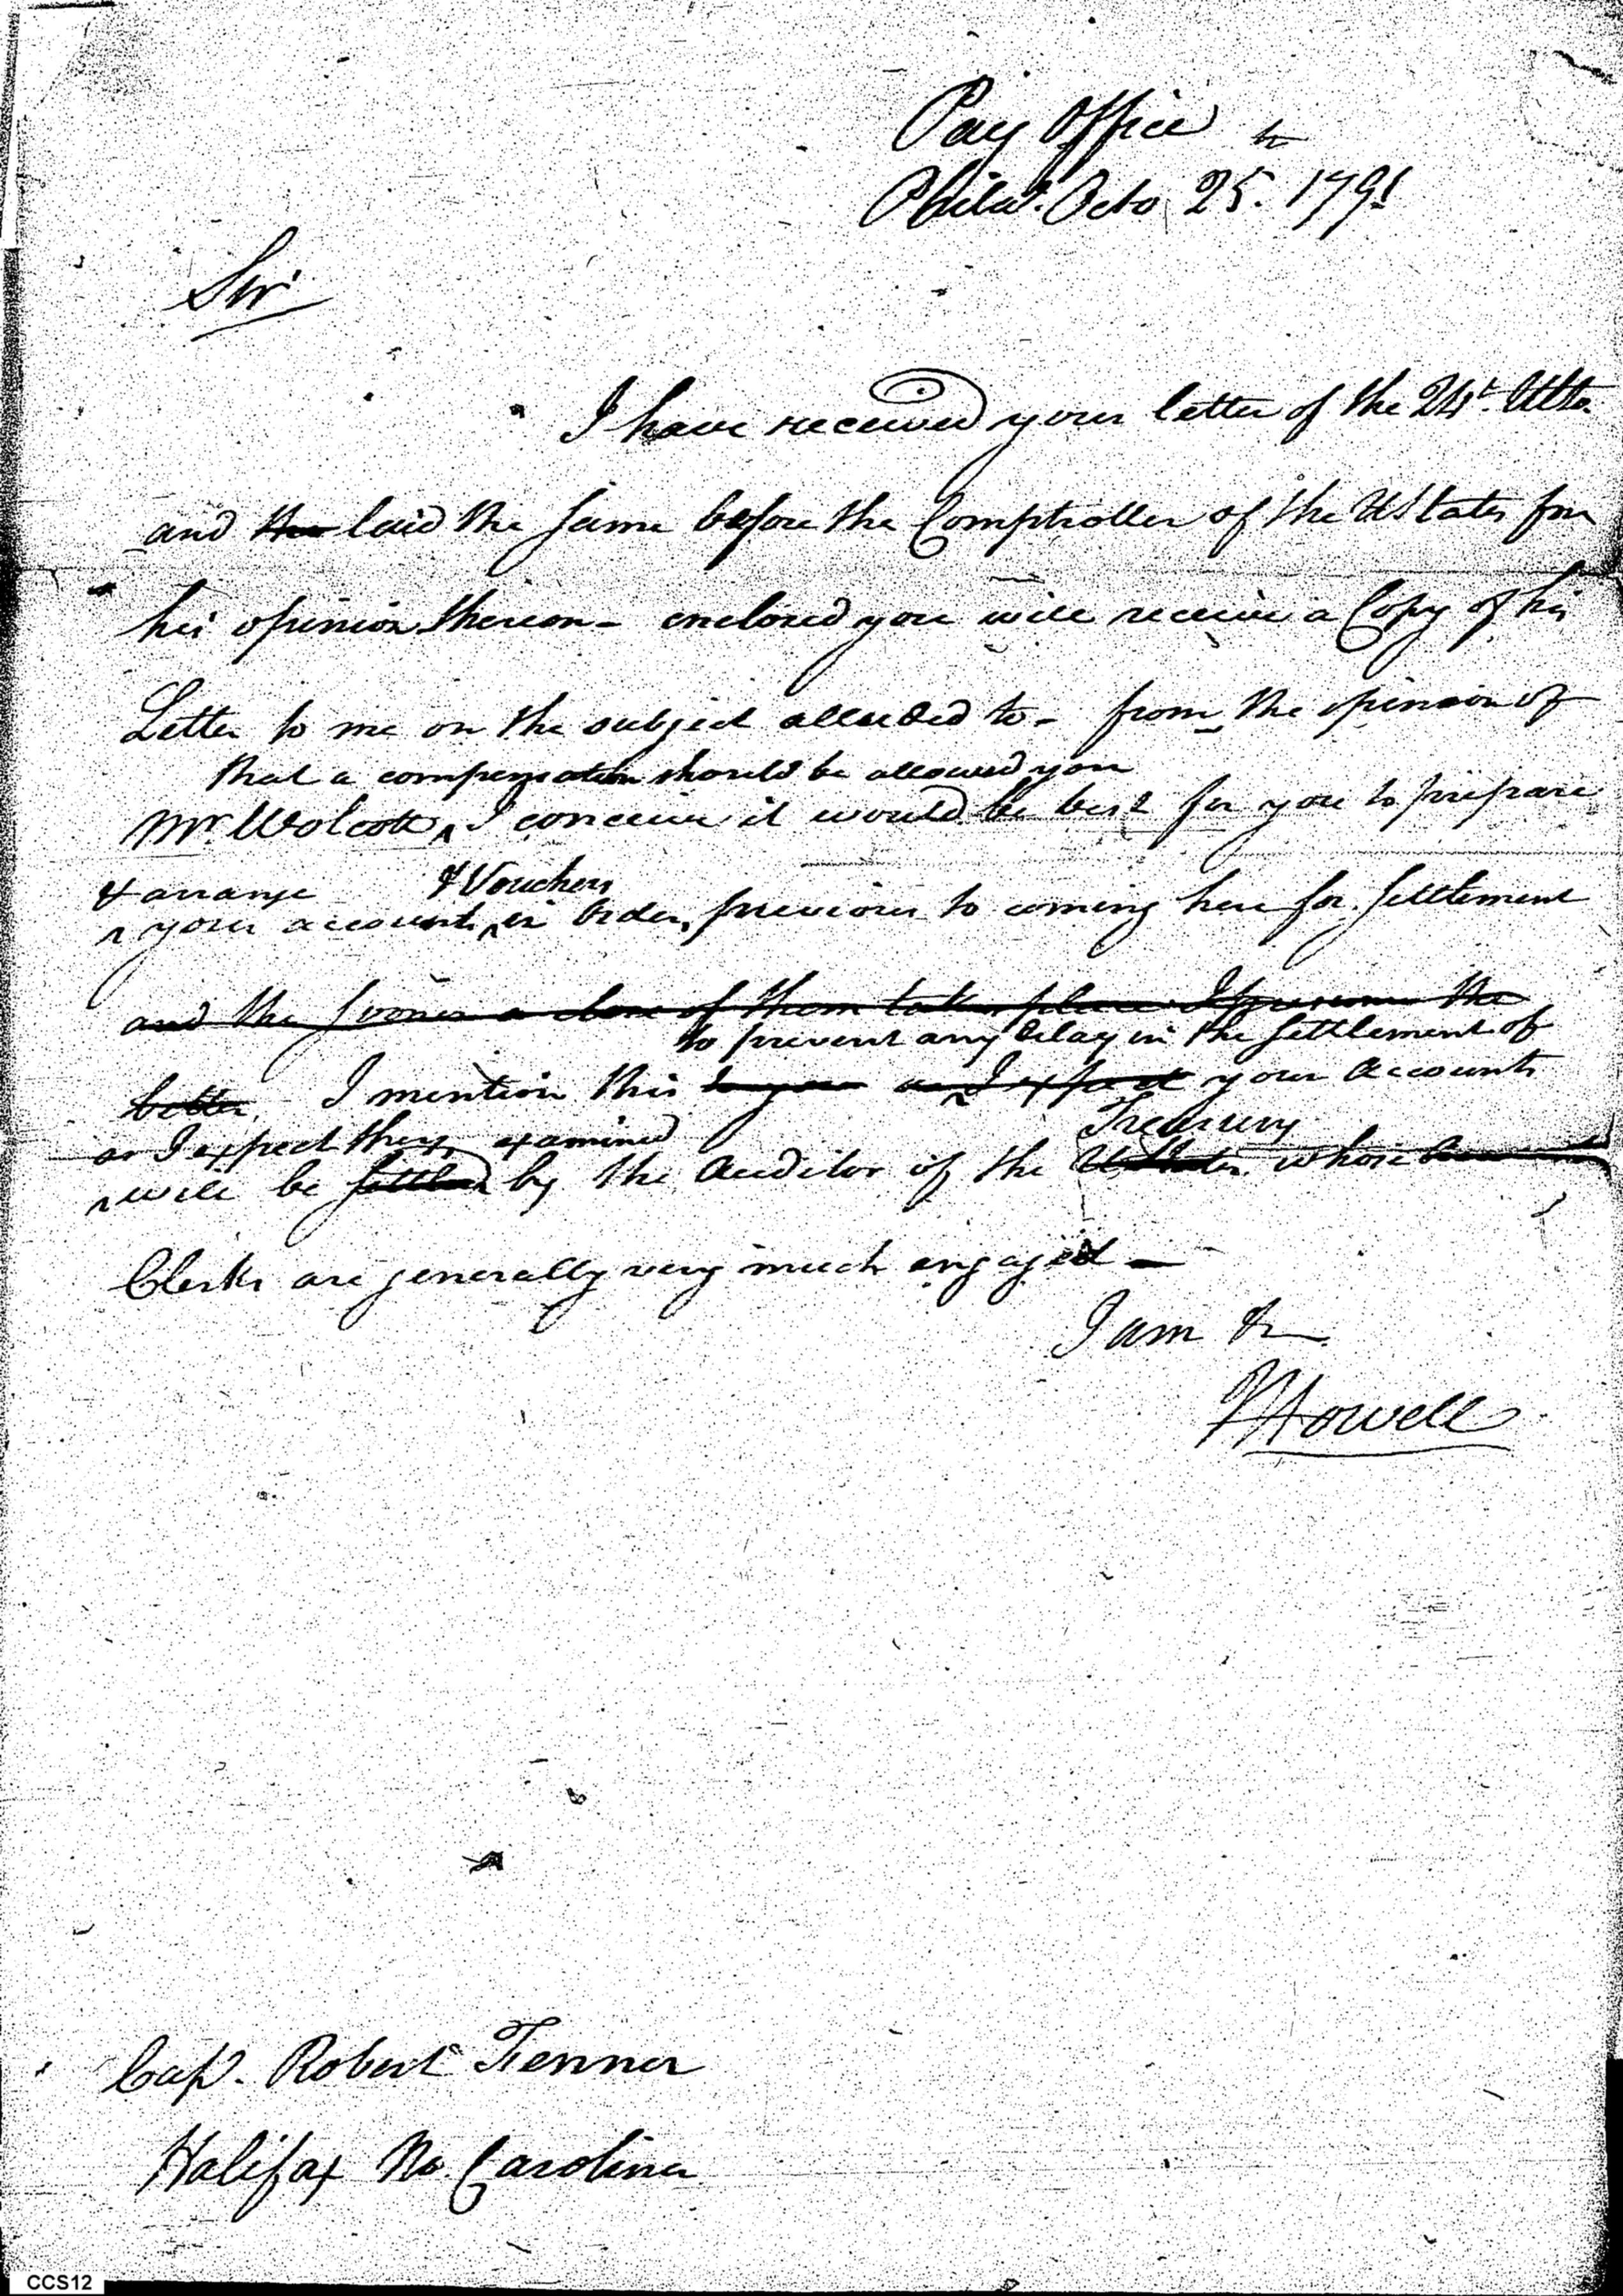 Pay Office
Philad. Octo 25. 1791
Sir
I have received your letter of the 24t. Ulto.
and the laid the same before the Comptroller of the UStates for
his opinion thereon - enclosed you will receive a Copy of his
Letter to me on the subject alluded to - from the opinion of
that a compensation should be allowed you
Mr. Wolcott ^ I conceive it would be best for you to prepare
& arrange & Vouchers
^ your accounts ^ in Order, previous to coming here for settlement
and the sooner a close of them takes place I presume the
to prevent any delay in the settlement of
better. I mention this to you as I expect your Accounts
as I expect they examined Treasury
^ will be settled by the Auditor of the UStates whose
Clerks are generally very much engaged -
I am &
JHowell
Cap. Robert Fenner
Halifax No. Carolina
CCS12